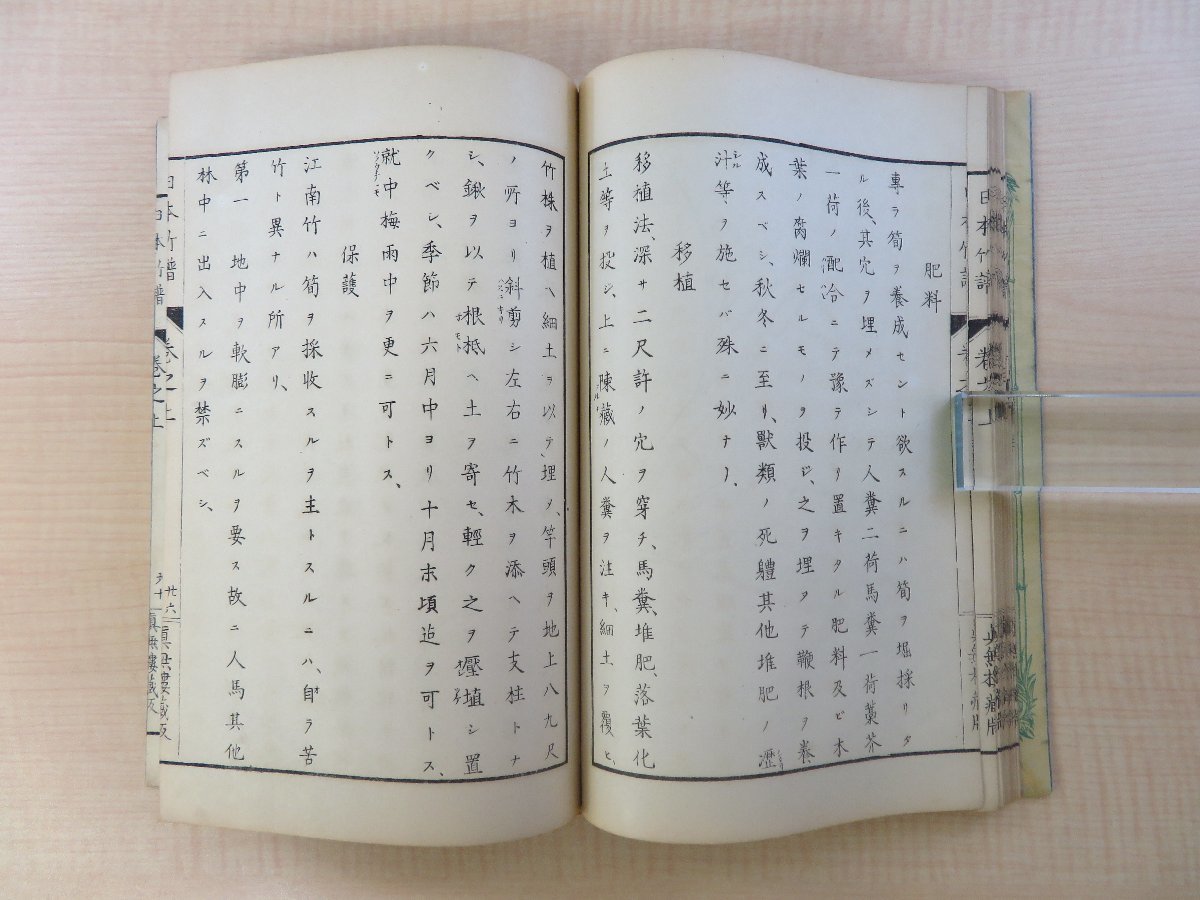 肥料
專ラ筍ヲ養成セント欲スルニハ筍ヲ堀採リタ
ル後、其穴ヲ埋メズシテ人糞二荷馬糞一荷藁芥
一荷ノ配合ニテ豫テ作リ置キタル肥料及ビ木
葉ノ腐爛セルモノヲ投ジ、之ヲ埋ヲテ鞭根ヲ養
成スベシ、秋冬ニ至リ、獸類ノ死軆其他堆肥ノ瀝
汁等ヲ施セバ殊ニ妙ナリ、
移植
移植法、深サ二尺許ノ穴ヲ穿チ、馬糞、堆肥、落葉化
土等ヲ投ジ、上ニ陳藏ノ人糞ヲ注キ、細土ヲ覆ヒ、
竹株ヲ植ヘ細土ヲ以テ埋ヲ、竿頭ヲ地上八九尺
ノ所ヨリ斜剪シ左右ニ竹木ヲ添ヘテ支柱トナ
シ、鍬ヲ以テ根柢ヘ土ヲ寄セ、輕ク之ヲ壓埴シ置
クベシ、季節ハ六月中ヨリ十月末頃迠ヲ可トス、
就中梅雨中ヲ更ニ可トス、
保護
江南竹ハ筍ヲ採收スルヲ主トスルニハ、自ラ苦
竹ト異ナル所アリ、
第一 地中ヲ軟膨ニスルヲ要ス故ニ人馬其他
林中ニ出入スルヲ禁ズベシ、
日本竹譜
卷之上
廿六